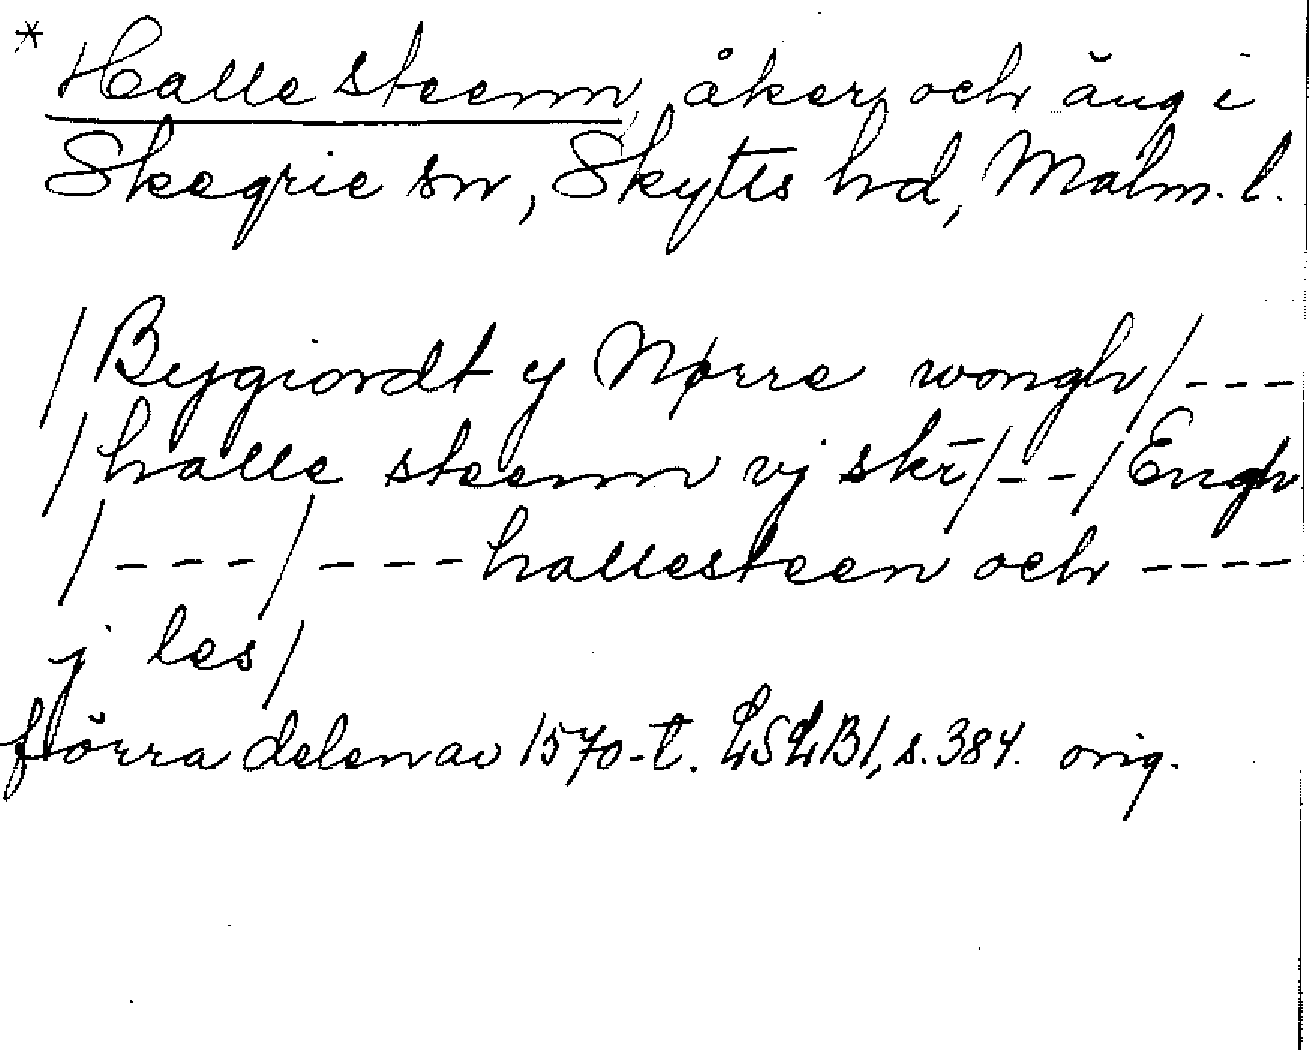 * Halle steenn, åker och äng i
Skegrie sn, Skytts hd, Malm. l.
/Bygiordt y Nørre wongh/---
/halle steenn vj skr̄/--/Engh
/---/---hallesteen och ----
j les/
förra delen av 1570-t. LSLB1, s. 384. orig.